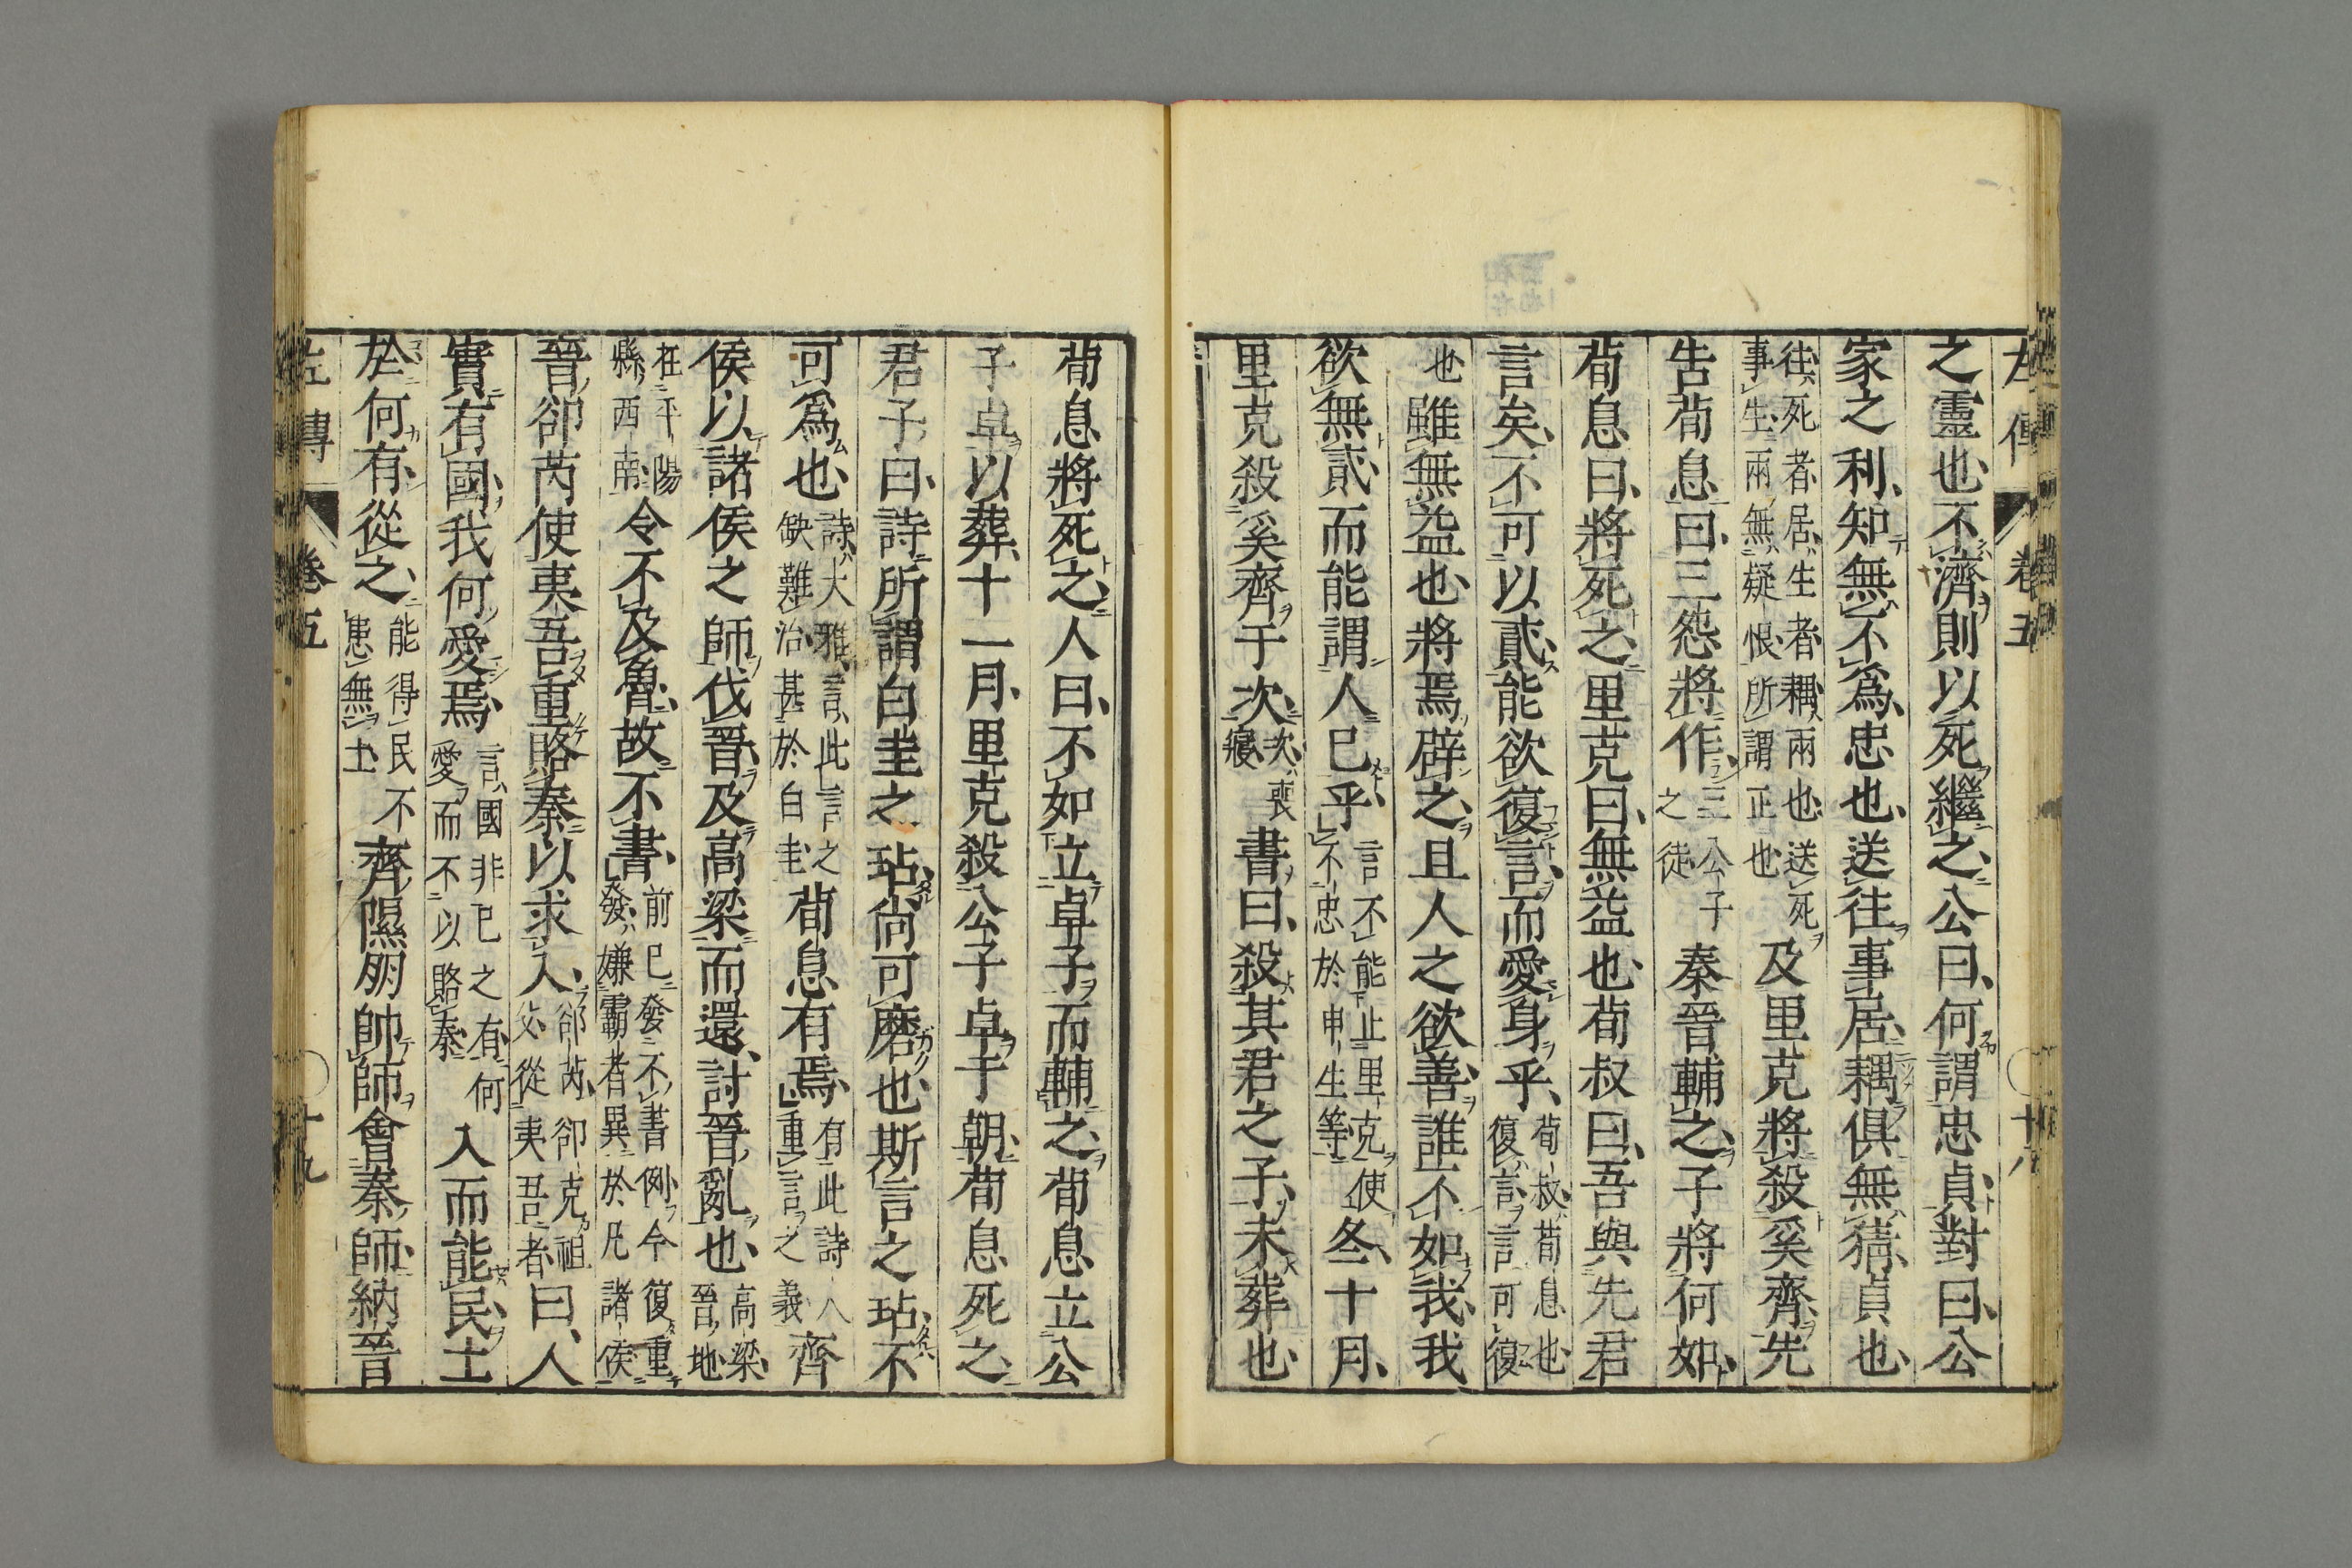 左傳 卷五 十八
之靈也不濟則以死繼之公曰何謂忠貞對曰公
家之利知無不爲忠也送往事居耦俱無猜貞也
往死者居生者耦兩也送死
事生兩無疑恨所謂正也
及里克將殺奚齊先
告荀息曰三怨將作
三公子
之徒
秦晉輔之子將何如
荀息曰將死之里克曰無益也荀叔曰吾與先君
言矣不可以貳能欲復言而愛身乎
荀叔荀息也
復言言可復
也
雖無益也將焉辟之且人之欲善誰不如我我
欲無貳而能謂人已乎
言不能止里克使
不忠於申生等
冬十月
里克殺奚齊于次
次喪
寢
書曰殺其君之子未葬也
荀息將死之人曰不如立卓子而輔之荀息立公
子卓以葬十一月里克殺公子卓于朝荀息死之
君子曰詩所謂白圭之玷尚可磨也斯言之玷不
可爲也
詩大雅言此言之
缺難治甚於白圭
荀息有焉
有此詩人
重言之義
齊
侯以諸侯之師伐晉及高梁而還討晉亂也
高梁
晉地
在平陽
縣西南
令不及魯故不書
前已發不書例今復重
發嫌霸者異於凡諸侯
晉郤芮使夷吾重賂秦以求入
郤芮郤克祖
父從夷吾者
曰人
實有國我何愛焉
言國非已之有何
愛而不以賂秦
入而能民土
於何有從之
能得民不
患無土
齊隰朋帥師會秦師納晉
左傳 卷五 十九